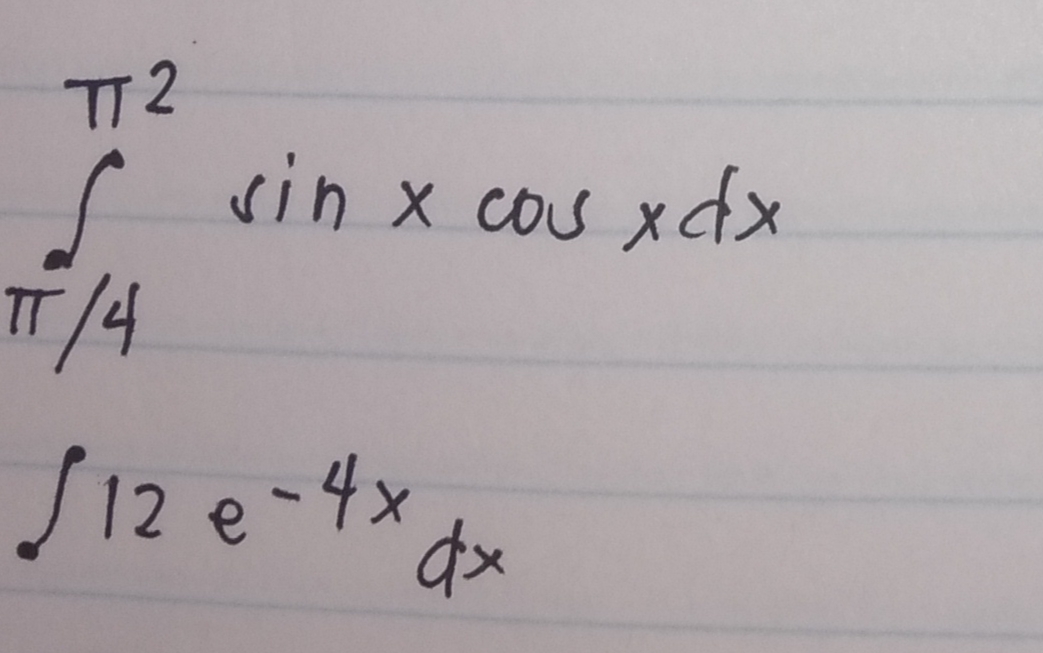 π²
∫ sin x cos x dx
π/4
∫ 12 e⁻⁴ˣ dx